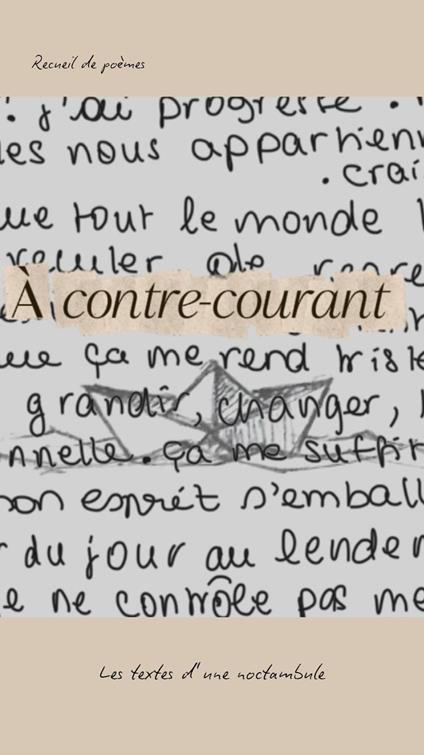 Recueil de poèmes
! j'ai progressé .
les nous appartienn
. crai
ue tout le monde
reculer de
À contre-courant
ue ça me rend triste
grandir, changer,
nnelle. ça me suffir
on esprit s'emball
du jour au lendem
e ne contrôle pas me
Les textes d'une noctambule